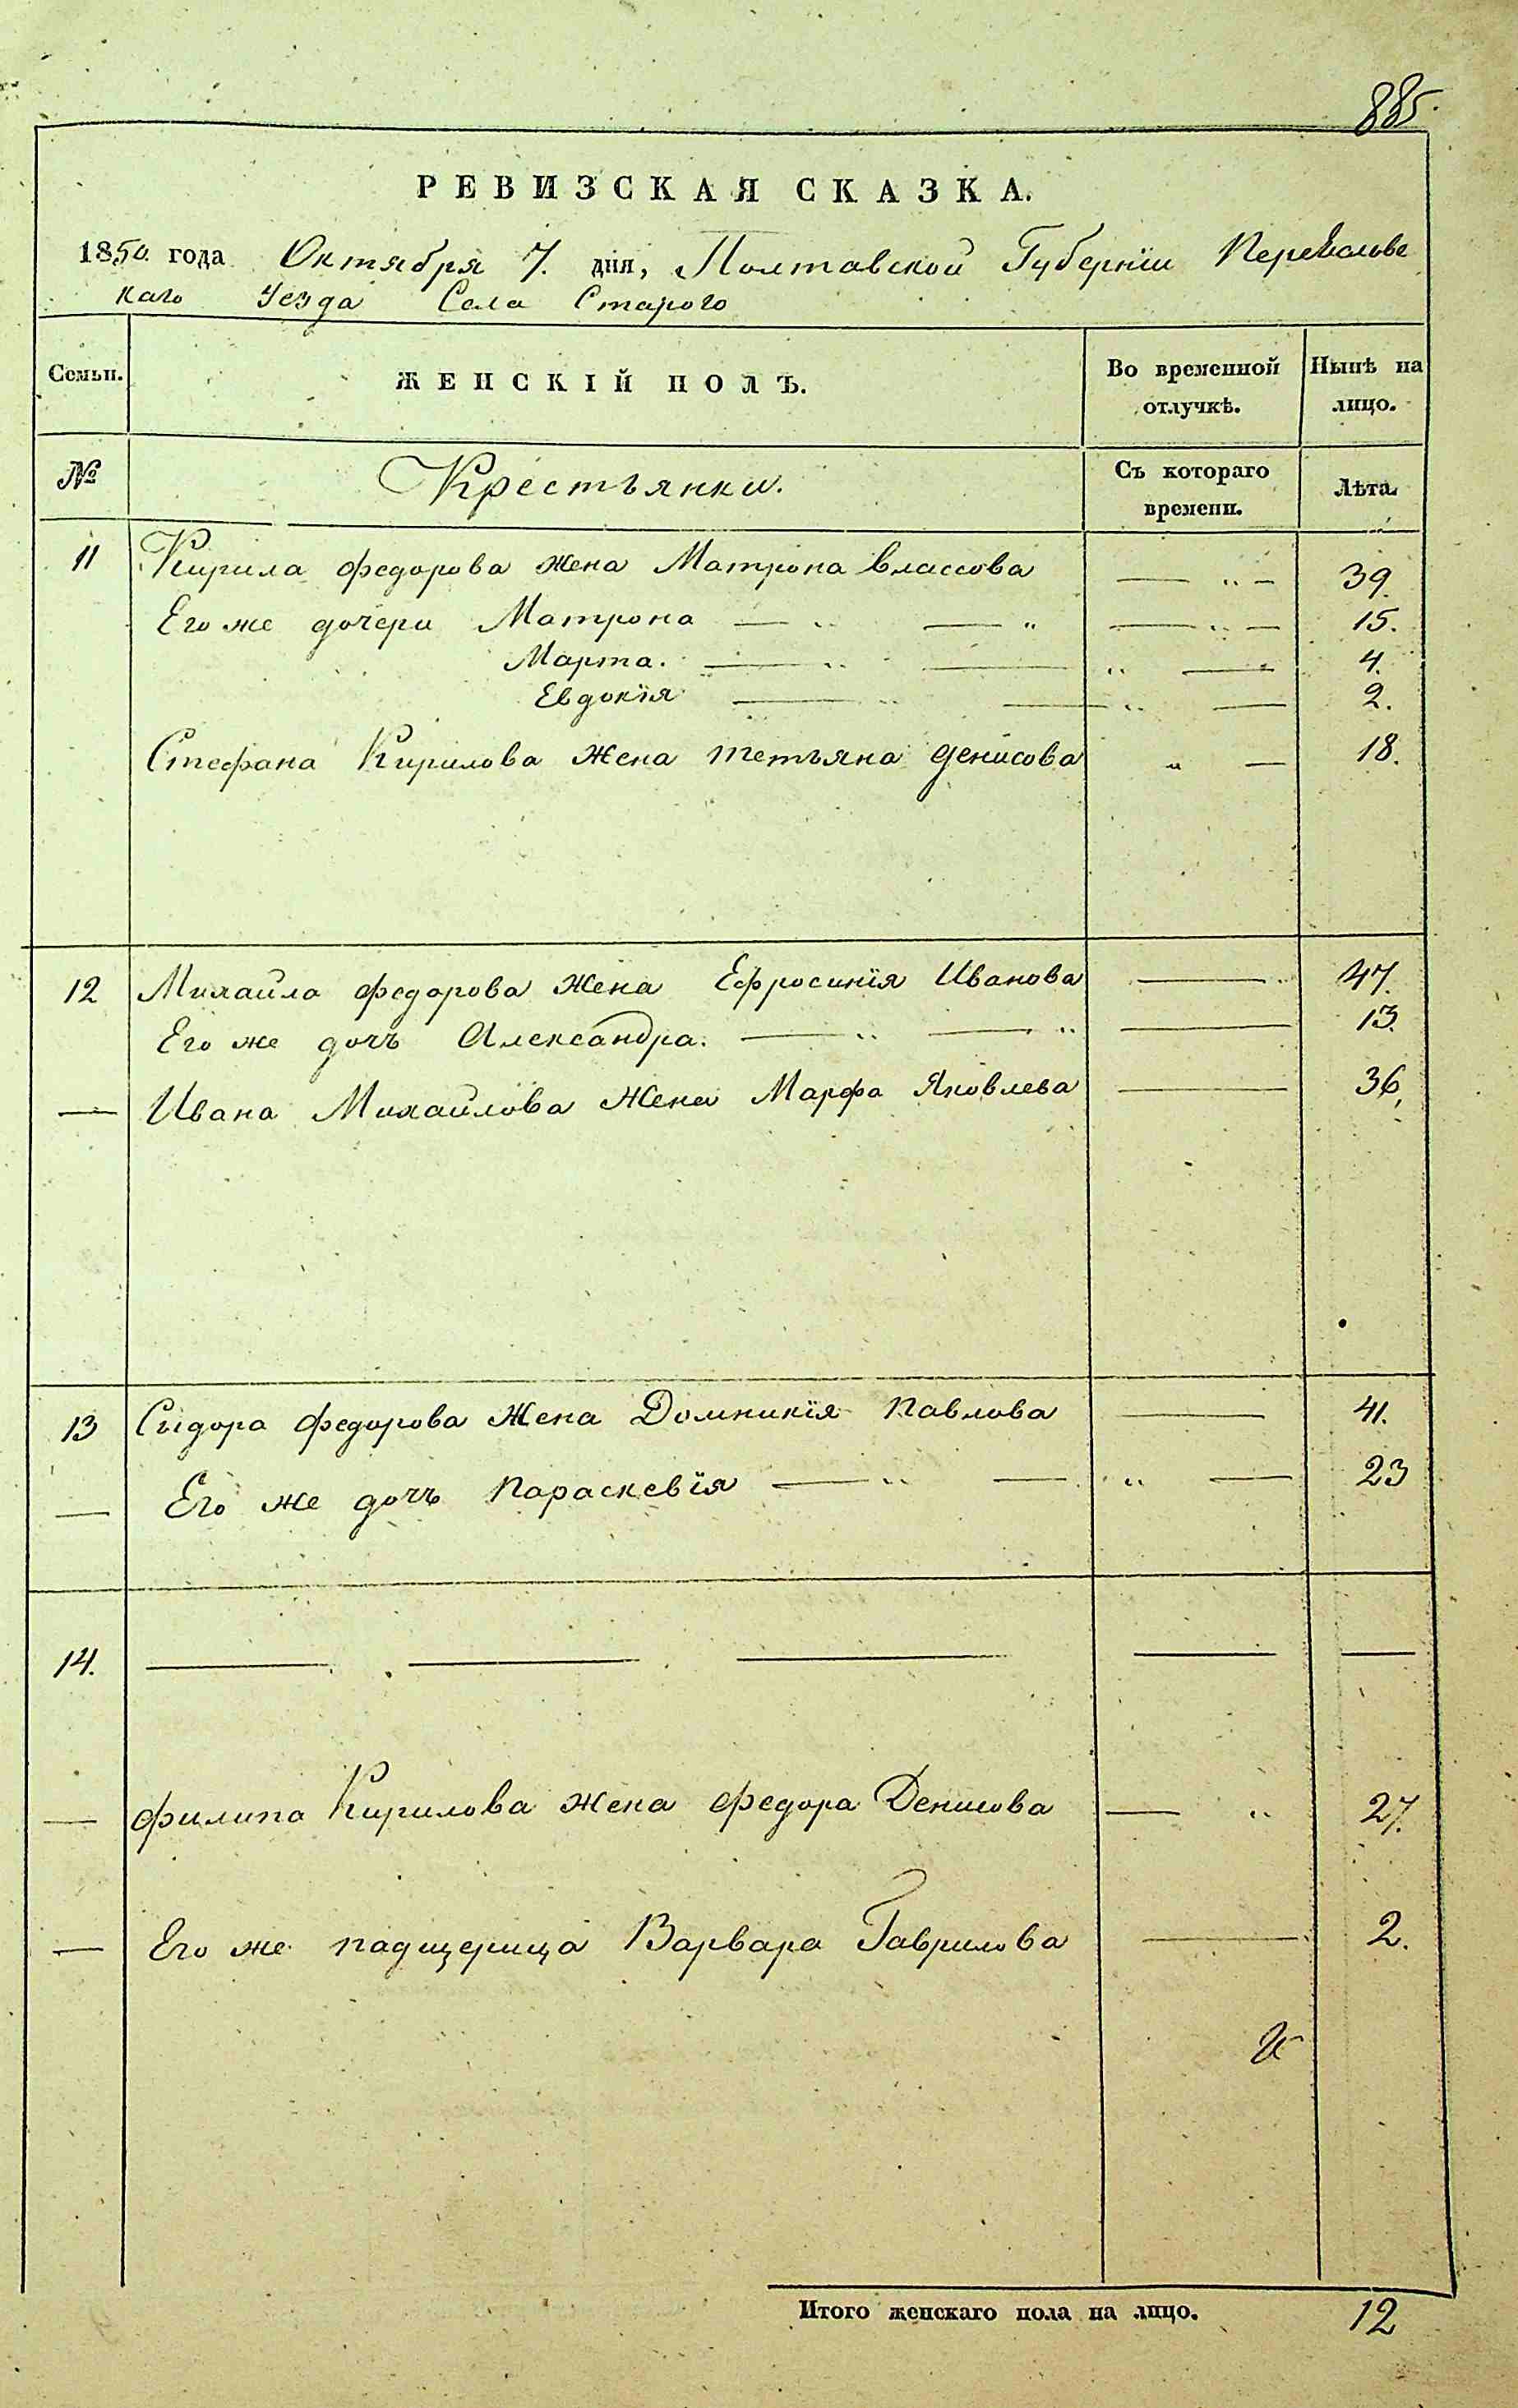 885.
РЕВИЗСКАЯ СКАЗКА.
1850. года Октября 7. дня, Полтавской Губерніи Переяславс
каго Уезда Села Старого
Семьи. ЖЕНСКІЙ ПОЛЪ. Во временной отлучкѣ. Нынѣ на лицо.
№ Крестьянки. Съ котораго времени. Лѣта.
11 Кирила Федорова жена Матрона Влассова — „ — 39.
Его же дочери Матрона — „ — „ — „ — 15.
Марта. — „ — „ — 4.
Евдокія — „ — „ — 2.
Стефана Кирилова жена Тетьяна Денисова „ — 18.
12 Михайла Федорова жена Ефросинія Иванова — 47.
Его же дочь Александра. — „ — „ — 13.
— Ивана Михайлова жена Марфа Яковлева — 36,
13 Сыдора Федорова жена Домникія Павлова — 41.
— Его же дочь Параскевія — „ — „ — 23
14. — — — — —
— Филипа Кирилова жена Федора Денисова — „ 27.
— Его же падщерица Варвара Гаврилова — 2.
Итого женскаго пола на лицо. 12